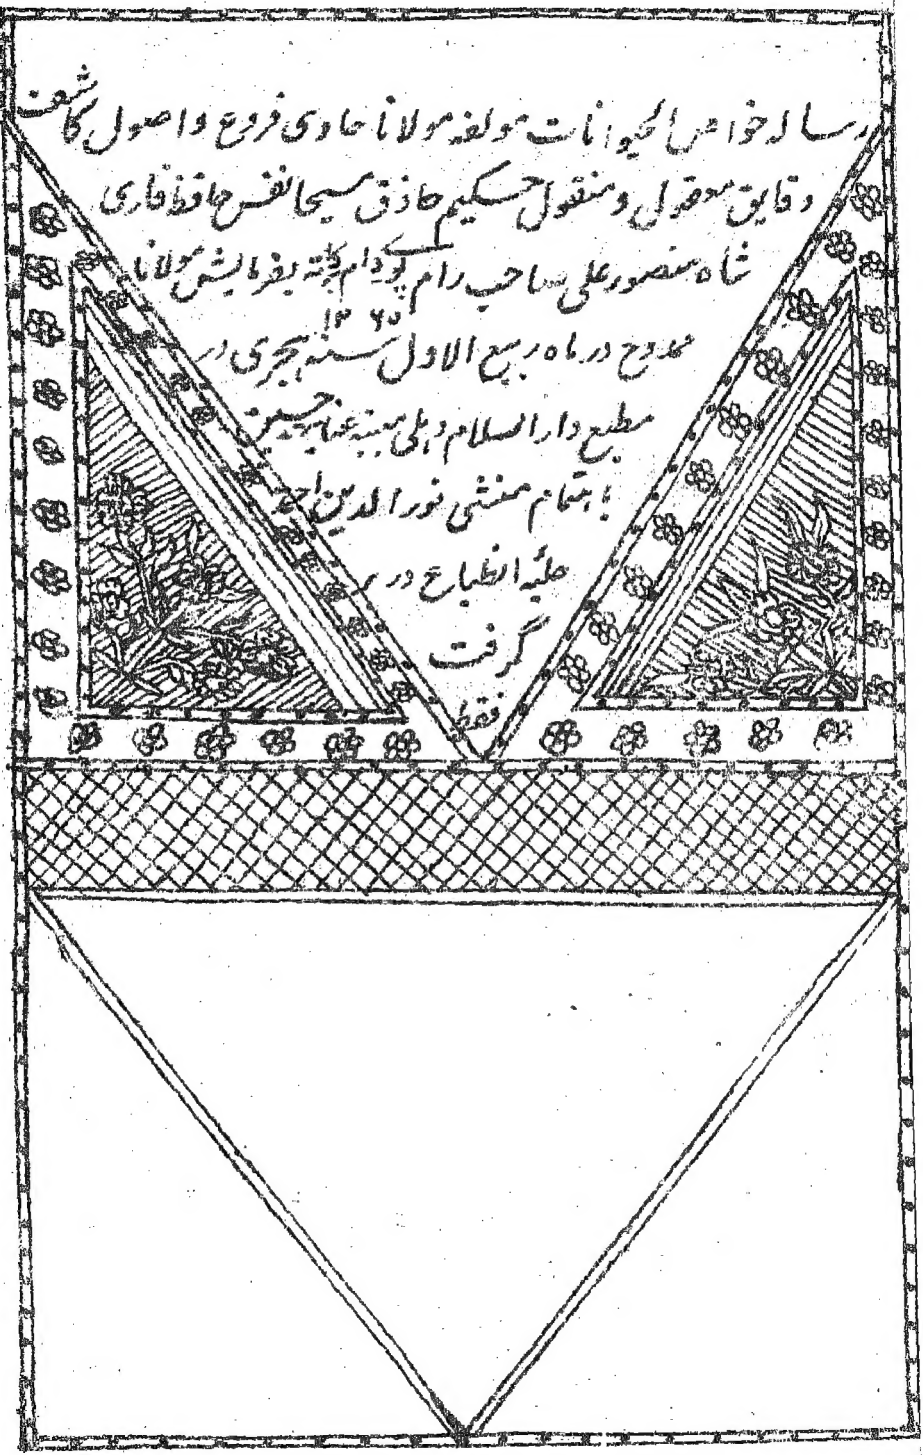 رسالہ خواص الحیوانات مولفہ مولانا حاوی فروع و اصول کاشف
دقایق معقول و منقول حکیم حاذق مسیحا نفس حافظ قاری
شاہ منصور علی صاحب دام برکاتہ بفرمایش مولانا
ممدوح در ماہ ربیع الاول سنہ ۱۲۶۵ ہجری در
مطبع دار السلام دہلی حسین
باہتمام منشی نور الدین احمد
حلیہ انطباع در بر
گرفت
فقط